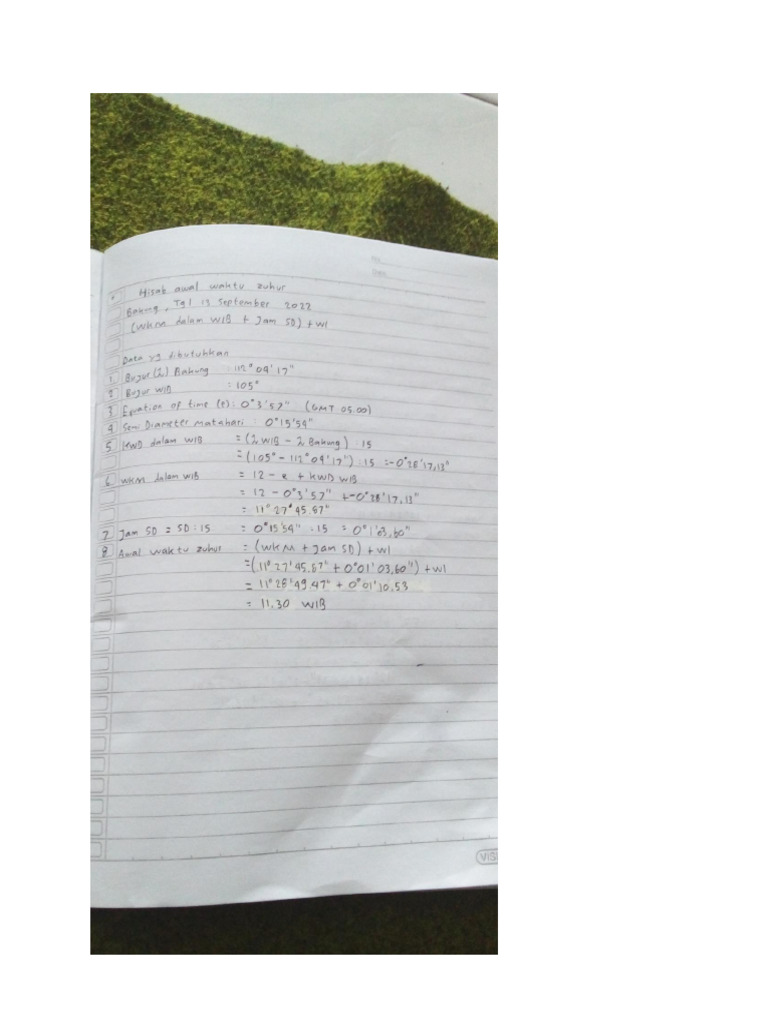 No.
Date.
Hisab awal waktu zuhur
Bakung, Tgl 13 September 2022
(WKM dalam WIB + Jam SD) + WI
Data yg dibutuhkan
1. Bujur (λ) Bakung : 112° 04' 17"
2 Bujur WIB : 105°
3 Equation of time (e) : 0° 3' 57" (GMT 05.00)
4 Semi Diameter matahari : 0° 15' 54"
5. KWD dalam WIB = (λ WIB - λ Bakung) : 15
= (105° - 112° 04' 17") : 15 = -0° 28' 17,13"
6. WKM dalam WIB = 12 - e + KWD WIB
= 12 - 0° 3' 57" + -0° 28' 17,13"
= 11° 27' 45.87"
7. Jam SD = SD : 15 = 0° 15' 54" : 15 = 0° 1' 03,60"
8. Awal waktu zuhur = (WKM + Jam SD) + WI
= (11° 27' 45.87" + 0° 01' 03,60") + WI
= 11° 28' 49.47" + 0° 01' 10.53
= 11.30 WIB
VIS